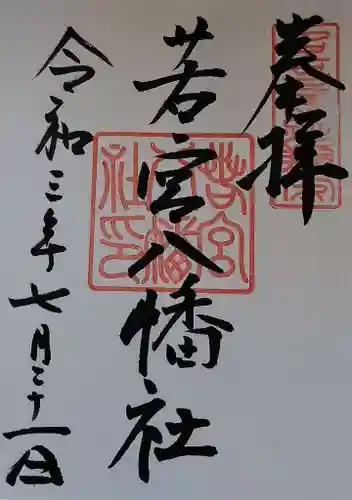 奉拝
若宮八幡社
令和三年七月二十一日
若宮八幡社印